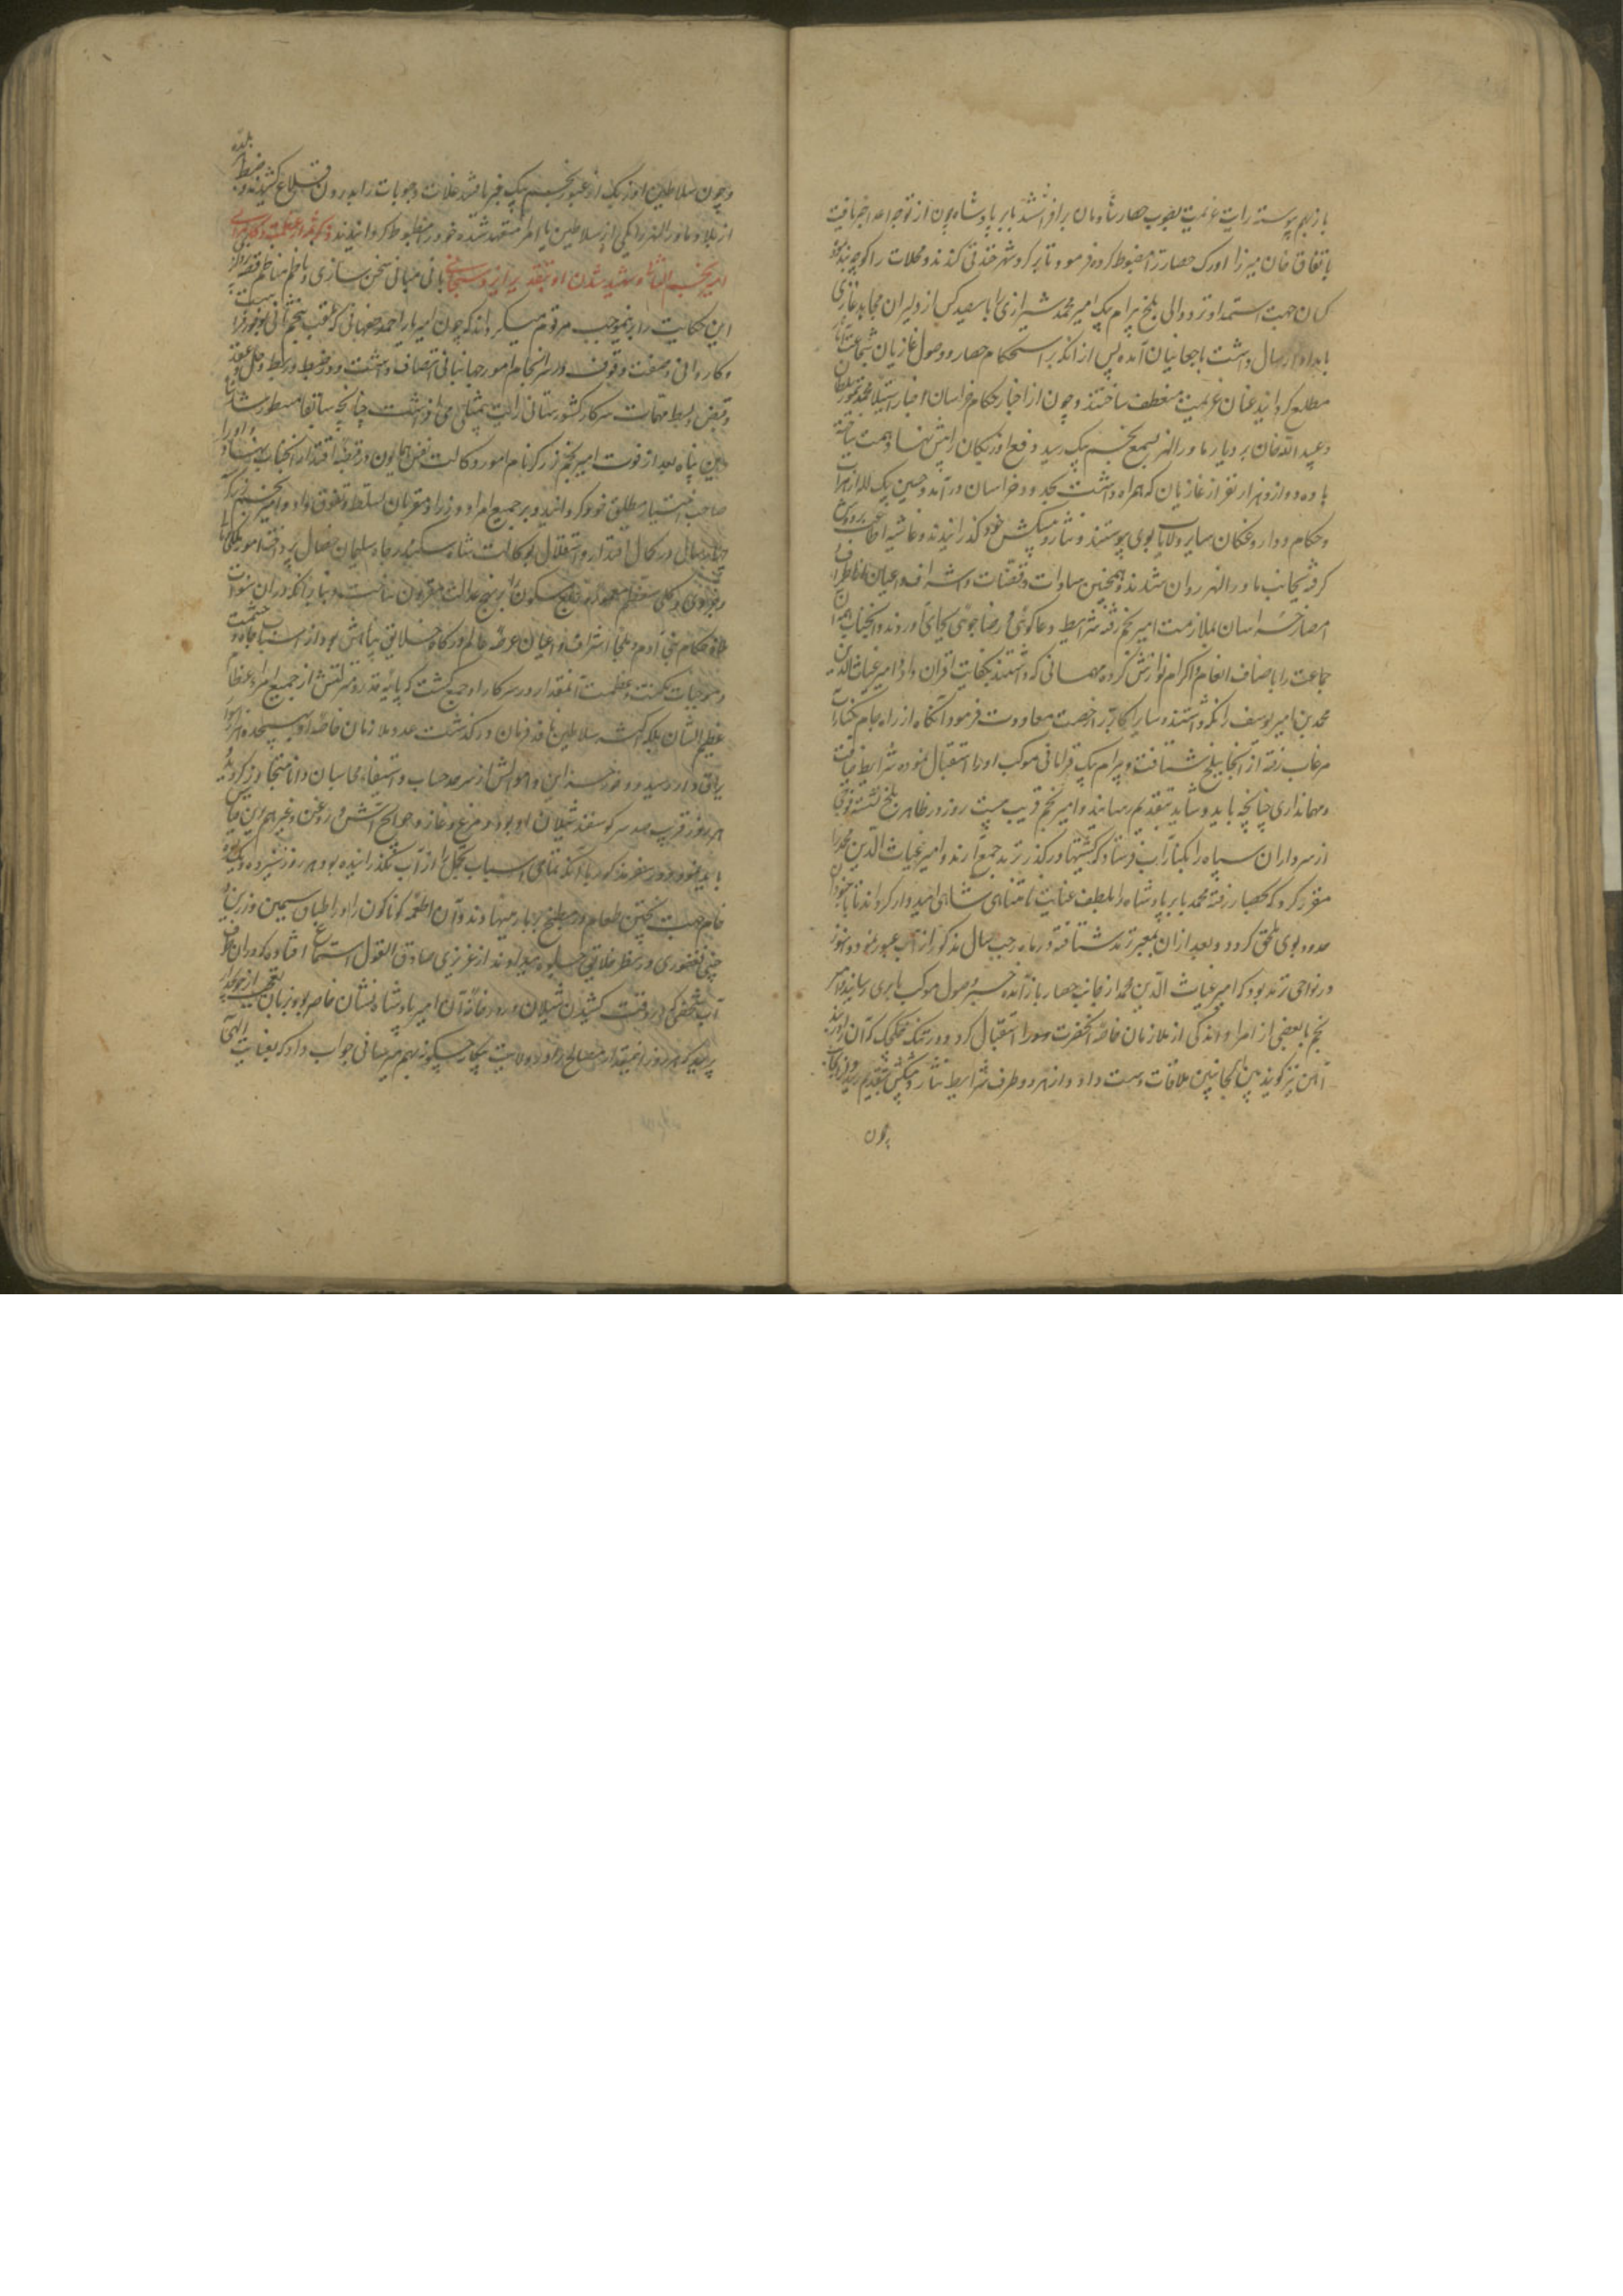 باز بهم پیوسته رایت عزیمت بصوب حصار شادمان برافراشتند بابر پادشاه چون از توجه اعدا خبر یافت
باتفاق خان میرزا اورک حصار را مضبوط کرده فرمود تا بر گرد شهر خندقی کندند و محلات را کوچه بند
کسان جهت استمداد نزد والی بلخ بیرام بیک امیر محمد شیرازی را با سیصد کس از دلیران مجاهد غازی
بامداد ارسال داشت با چغانیان آمده پس از آنکه بر استحکام حصار و وصول غازیان شجاعت آثار
مطلع گردیدند عنان عزیمت منعطف ساختند و چون از اخبار حکام خراسان اخبار استیلاء محمد تیمور سلطان
و عبید الله خان بر دیار ماوراء النهر بسمع نجم بیک رسید دفع اوزبکان را پیش نهاد همت ساخته
با ده دوازده هزار نفر از غازیان که همراه داشت بحدود خراسان درآمد و حسین بیک لله از هرات
و حکام و داروغگان سایر ولایات بوی پیوستند و نثار و پیشکش خود گذرانیدند و غاشیه اطاعت بر دوش
گرفته بجانب ماوراء النهر روان شدند و همچنین سادات و قضات و اشراف و اعیان اطراف
امصار خراسان بملازمت امیر نجم رفته شرایط دعاگوئی و رضا جوئی بجای آوردند و آنجناب همه آن
جماعت را باصناف انعام و اکرام نوازش کرده مهماتی که داشتند بکفایت اقران داد و امیر غیاث الدین
محمد بن امیر یوسف را نگه داشتند و سایر اکابر را رخصت معاودت فرمود آنگاه از راه جام بکنار آب
مرغاب رفته از آنجا ببلخ شتافت و بیرام بیک قرامانی موکب او را استقبال نموده شرایط ضیافت
و مهمانداری چنانچه باید و شاید بتقدیم رسانید و امیر نجم قریب بیست روز در ظاهر بلخ نشسته فوجی
از سرداران سپاه را بکنار آب فرستاد که کشتیها در گذر ترمذ جمع آرند و امیر غیاث الدین محمد را
مقرر کرد که بحصار رفته محمد بابر پادشاه را بلطف عنایت نامتناهی شاهی امیدوار گرداند تا با جنود
معدود بوی ملحق گردد و بعد از آن بمعبر ترمذ شتافته در ماه رجب سال مذکور از آب عبور نمود و هنوز
در نواحی ترمذ بود که امیر غیاث الدین محمد از جانب حصار باز آمده خبر وصول موکب بابری رسانید و امیر
نجم با بعضی از امرا و اندکی از ملازمان خاصه آنحضرت را استقبال کرد و در تنگ چکچک که آن را دربند
آهن نیز گویند بین الجانبین ملاقات دست داد و از هر دو طرف شرایط نثار و پیشکش بتقدیم رسید
چون
و چون سلاطین اوزبک از عبور نجم بیک خبر یافتند غلات و حبوبات را بدرون قلاع کشیدند و ضبط هر بلده
از بلاد ماوراء النهر را یکی از سلاطین یا امرا متعهد شده خود را مضبوط گردانیدند ذکر شمه از عظمت و کامرانی
امیر نجم الثانی و شهید شدن او بتقدیر ایزد سبحانی بانی مبانی سخن سازی و ناظم مناظم قصه پردازی
این حکایت را برینموجب مرقوم میگرداند که چون امیر یار احمد اصفهانی که لقب نجم ثانی یافت بوفور رای
و کاردانی و صفت وقوف در سرانجام امور جهانبانی اتصاف داشت و در ضبط و ربط و حل و عقد
و قبض و بسط مهمات سرکار کشورستانی رایت بیمثلی می افراشت چنانچه سابقا مسطور شد شاه
دین پناه بعد از فوت امیر نجم زرگر زمام امور وکالت نفس همایون در قبضه اقتدار آنجناب نهاد و او را
صاحب اختیار مطلق خود گردانید و بر جمیع امرا و وزرا و مقربان تسلط و تفوق داد و امیر نجم بیک
چند سال در کمال اقتدار و استقلال بوکالت شاه سکندر جاه سلیمان خصال پرداخته امور ملکی و مالی
و جزوی و کلی معظم معموره ربع مسکون را بر نهج عدالت مقرون ساخت و بنابر آنکه در آن سنوات
ملاذ حکام بنی آدم و ملجأ اشراف و اعیان عرصه عالم درگاه خلایق پناهش بود از اسباب جاه و حشمت
و موجبات مکنت و عظمت آنمقدار در سرکار او جمع گشت که پایه قدر و منزلتش از جمیع امراء عظام
عظیم الشان بلکه از اکثر سلاطین نافذ فرمان درگذشت عدد ملازمان خاصه او به پنجهزار سوار
یراق دار رسید و وفور خزاین و اموالش از سرحد حساب و استیفاء محاسبان دانا متجاوز گردید
هر روز قریب صد سر گوسفند شیلان او بود و مرغ و غاز و حوایج آتش و روغن و غیرهم برین قیاس
باید نمود و در سفر مذکور با آنکه تمامی اسباب تجمل را از آب نگذرانیده بود هر روز سیزده دیگ نقره
خام جهت پختن طعام در مطبخ بر بار مینهادند و آن اطعمه گوناگون را در اطباق سیمین و زرین و
چینی فغفوری در نظر خلایق جلوه میدادند از عزیزی صادق القول استماع افتاده که در آن طرف
آب شخصی که در وقت کشیدن شیلان در دیوانخانه آن امیر پادشاه نشان حاضر بود بزبان تعجب از خوانسالار
پرسید که هر روز اینمقدار مصالح در این ولایت بیکار چگونه بهم میرسانی جواب داد که بعنایت الهی